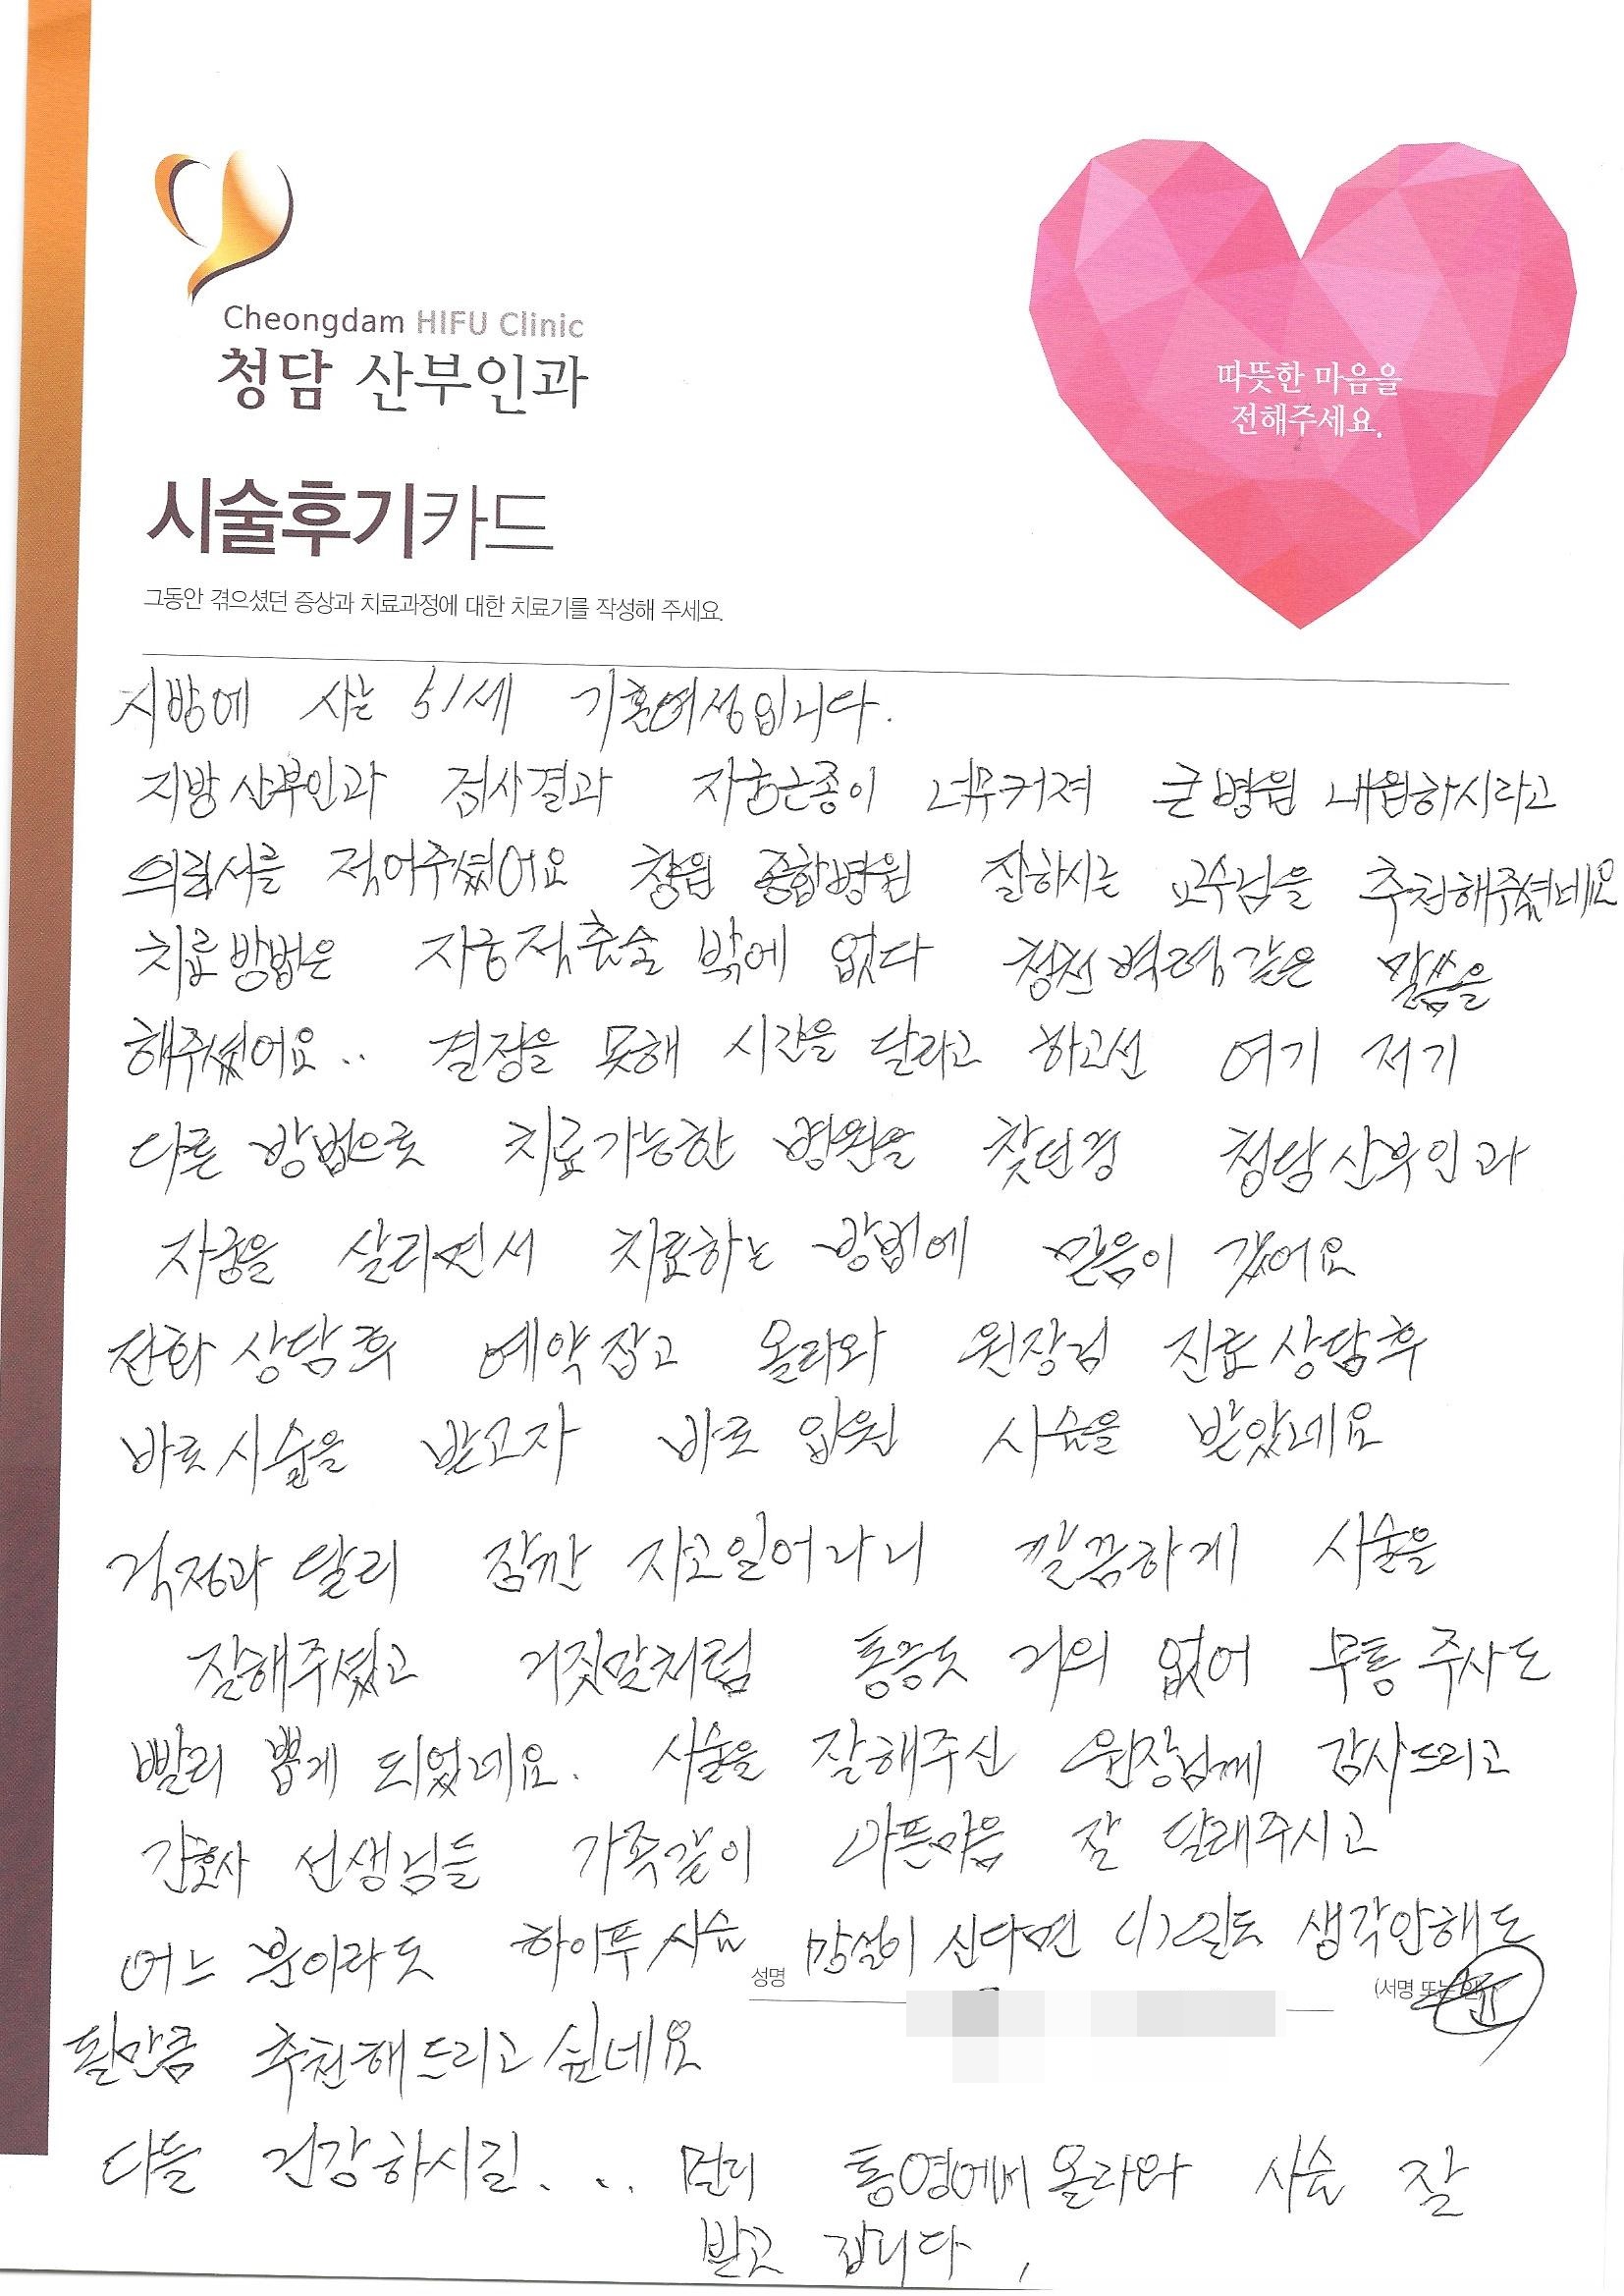 Cheongdam HIFU Clinic
청담 산부인과
따뜻한 마음을
전해주세요.
시술후기카드
그동안 겪으셨던 증상과 치료과정에 대한 치료기를 작성해 주세요.
지방에 사는 51세 기혼여성입니다.
지방산부인과 검사결과 자궁근종이 너무커져 큰병원 내원하시라고
의뢰서를 적어주셨어요 창원 종합병원 잘하시는 교수님을 추천해주셨네요
치료방법은 자궁적출술 밖에 없다 청천벽력같은 말씀을
해주셨어요.. 결정을 못해 시간을 달라고 하고선 여기 저기
다른 방법으로 치료가능한 병원을 찾던중 청담산부인과
자궁을 살리면서 치료하는 방법에 믿음이 갔어요
전화상담후 예약잡고 올라와 원장님 진료상담후
바로시술을 받고자 바로 입원 시술을 받았네요
걱정과 달리 잠깐 자고일어나니 깔끔하게 시술을
잘해주셨고 거짓말처럼 통증도 거의 없어 무통주사도
빨리 뽑게 되었네요. 시술을 잘해주신 원장님께 감사드리고
간호사 선생님들 가족같이 아픈마음 잘 달래주시고
어느 분이라도 하이푸시술 망설이신다면 생각안해도
성명
(서명 또는
될만큼 추천해드리고싶네요
다들 건강하시길... 멀리 통영에서올라와 시술 잘
받고 갑니다.